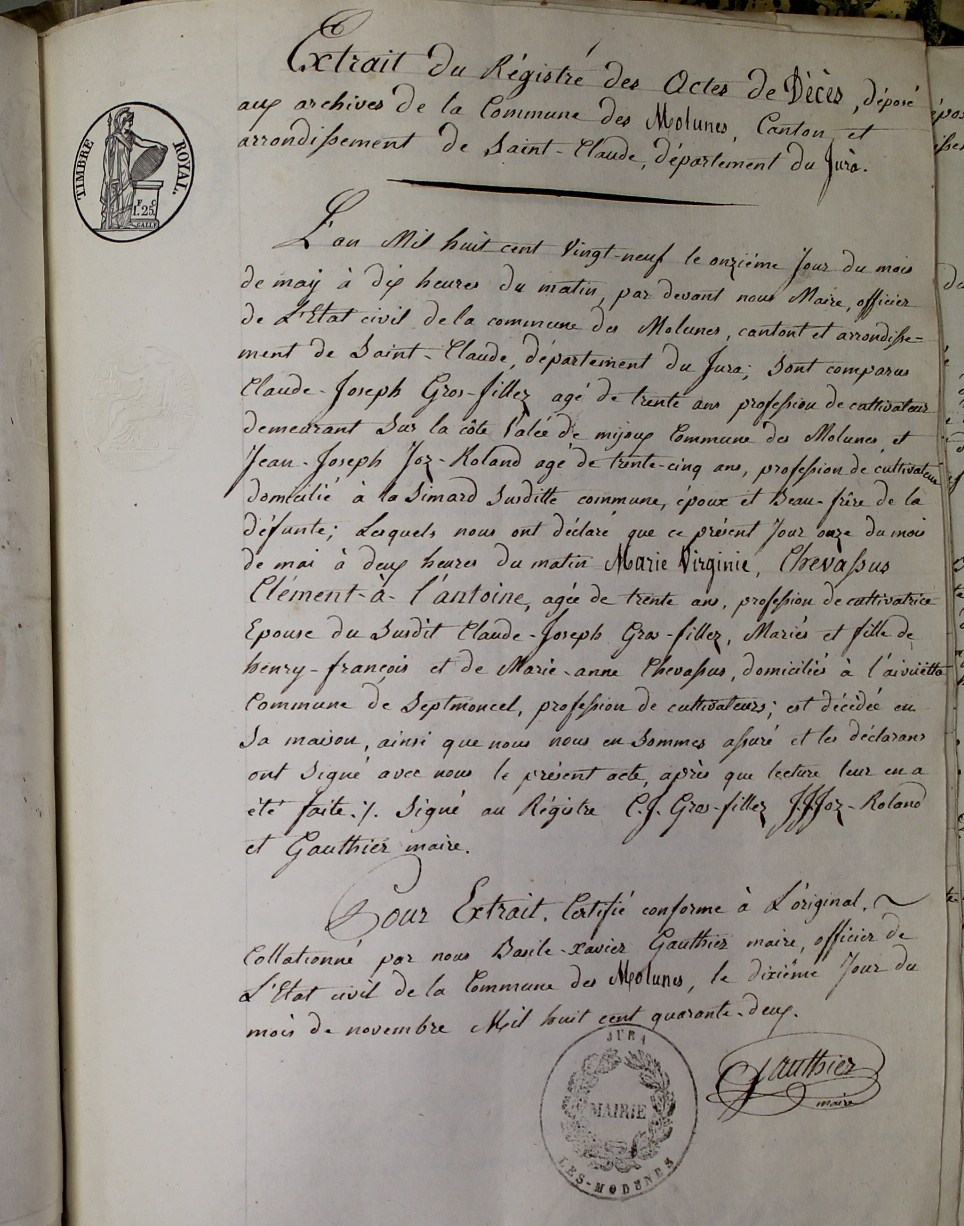 Extrait du Régistre des Actes de Décès, déposé
aux archives de la Commune des Molunes, Canton et
arrondissement de Saint-Claude, département du Jura.
TIMBRE ROYAL.
F C
1. 25.
L'an Mil huit cent Vingt-neuf le onziéme Jour du mois
de may à dix heures du matin, par devant nous Maire, officier
de L'Etat civil de la commune des Molunes, cantont et arrondisse-
ment de Saint-Claude, département du Jura; Sont comparus
Claude-Joseph Gros-fillez agé de trente ans profession de cultivateur
demeurant Sur la côte Valée de mijoux Commune des Molunes et
Jean-Joseph Joz-Roland agé de trente-cinq ans, profession de cultivateur
domicilié à la Simard Susditte commune, epoux et Beau-frêre de la
défunte; Lesquels nous ont déclaré que ce présent Jour onze du mois
de mai à deux heures du matin Marie Virginie, Chevassus
Clément-à-l'antoine, agée de trente ans, profession de cultivatrice
Epouse du Susdit Claude-Joseph Gros-fillez, Mariés et fille de
henry-francois et de Marie-anne Chevassus, domiciliés à
Commune de Septmoncel, profession de cultivateurs; est décidée en
Sa maison, ainsi que nous nous en Sommes assuré et les déclarans
ont Signé avec nous le présent acte, après que lecture leur en a
été faite./. Signé au Régistre C.J. Gros-fillez JJJoz-Roland
et Gauthier maire.
Pour Extrait. Certifié conforme à L'original.
Collationné par nous Basile-xavier Gauthier maire, officier de
L'Etat civil de la Commune des Molunes, le dixiême Jour du
mois de novembre Mil huit cent quarante-deux.
Gauthier
maire
JURA
MAIRIE
LES-MODUNES